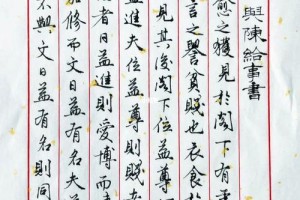 與陳給事書
愈之獲見於閣下有
言之譽貧賤也衣食於
見其後閣下位益
益進夫位益尊則賤
者日益進則愛博而
加修而文日益有名夫
不與文日益有名則同